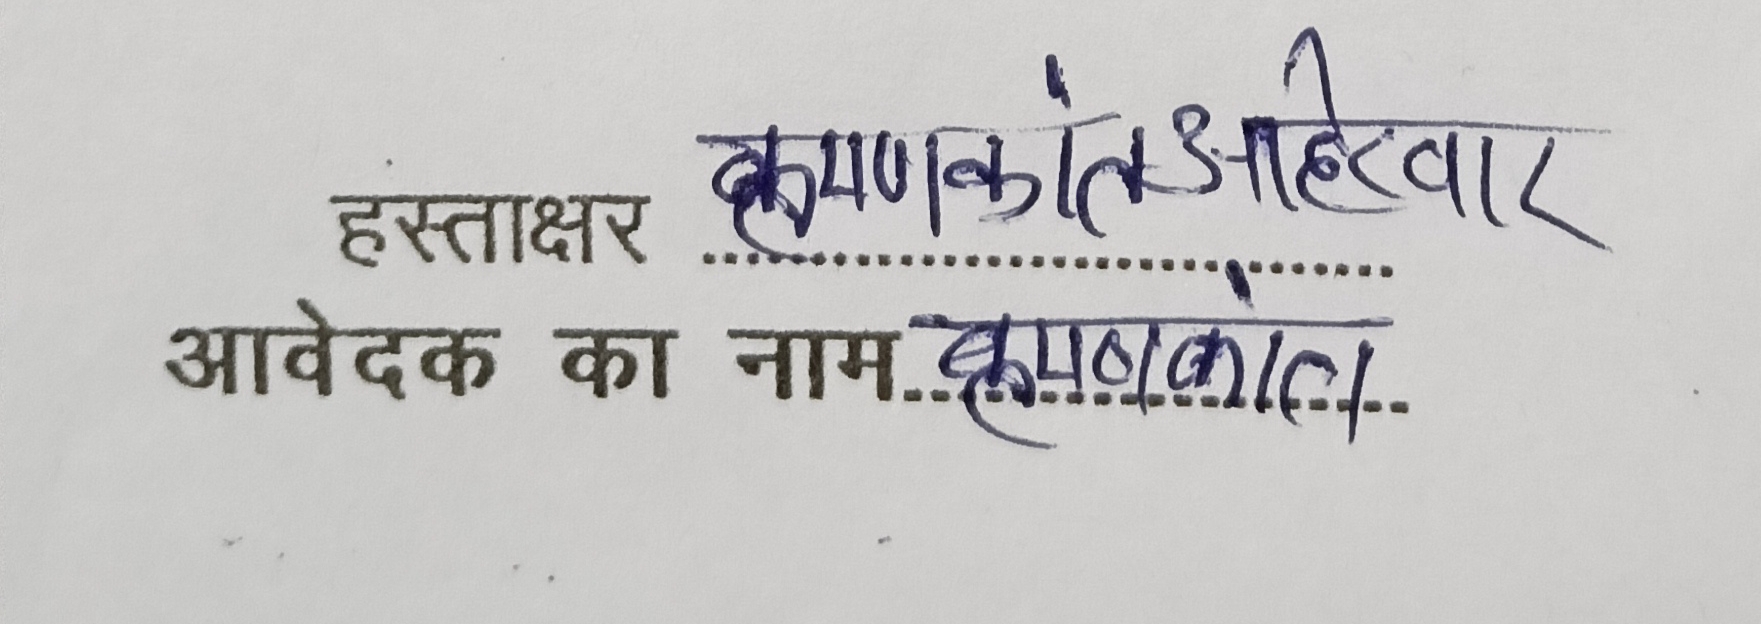 हस्ताक्षर कृष्णकांत अहिरवार
आवेदक का नाम कृष्णकांत